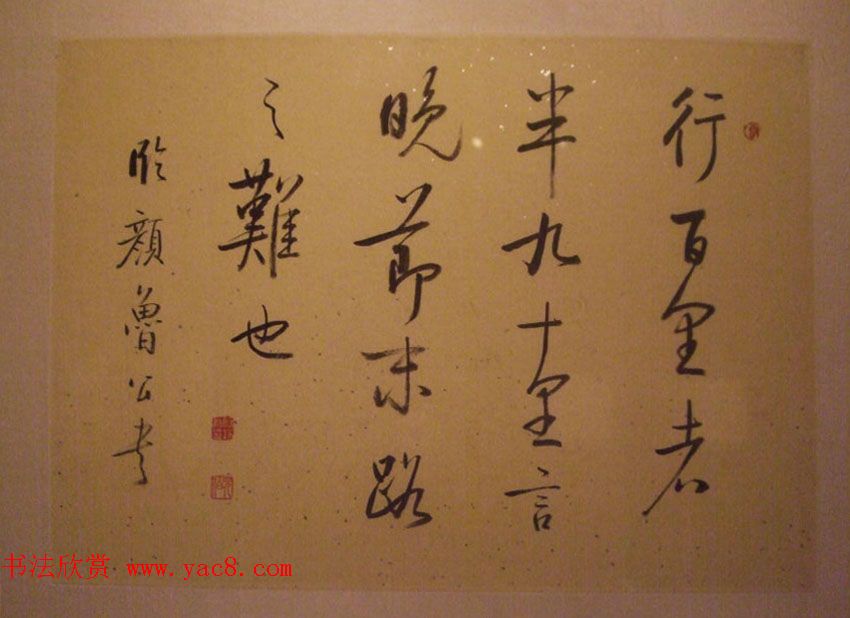 行百里者
半九十里言
晚節末路
之難也
臨顏魯公书
书法欣赏 www.yac8.com